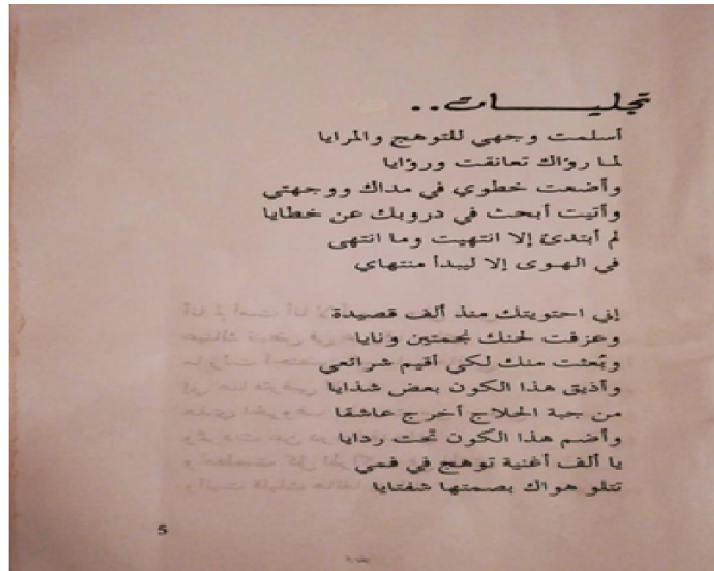 تجليات..
أسلمت وجهي للتوهج والمرايا
لما رؤاك تعانقت ورؤايا
وأضعت خطوي في مداك ووجهتي
وأتيت أبحث في دروبك عن خطايا
لم أبتدئ إلا انتهيت وما انتهى
في الهوى إلا ليبدأ منتهاي
إني احتويتك منذ ألف قصيدة
وعزفت لحنك نجمتين ونايا
وبعثت منك لكي أقيم شرائعي
وأذيق هذا الكون بعض شذايا
من جبة الحلاج أخرج عاشقا
وأضم هذا الكون تحت ردايا
يا ألف أغنية توهج في فمي
تتلو هواك بصمتها شفتايا
5